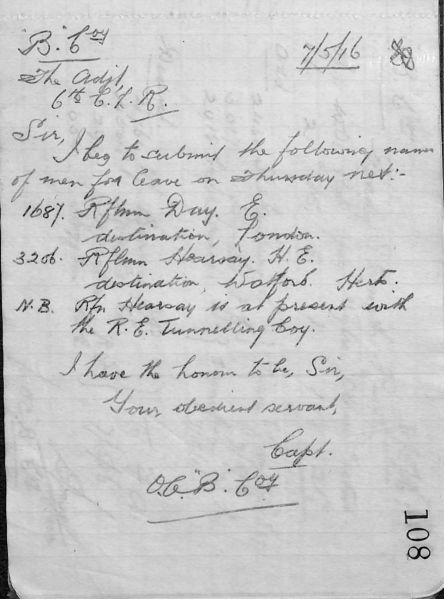 "B". Coy 7/5/16 88
The Adjt,
6th C. L. R.
Sir,
I beg to submit the following names
of men for leave on Thursday next:-
1687. Rflmn Day. E.
destination, London.
3206. Rflmn Hearsay. H. E.
destination, Watford. Herts.
N.B. Rfn Hearsay is at present with
the R. E. Tunnelling Coy.
I have the honour to be, Sir,
Your obedient servant,
Capt.
O.C. "B". Coy
108